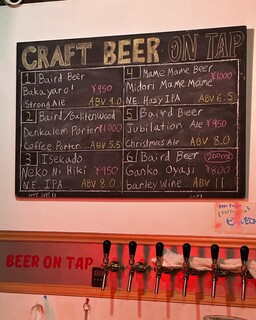 CRAFT BEER ON TAP
1 Baird Beer
Bakayaro! ¥950
Strong Ale ABV
2 Baird/
Denkalem Porter ¥1000
Coffee Porter ABV 5.5
3 Isekado
Neko Ni Hiki ¥950
N.E. IPA ABV 8.0
4 Mame Mame Beer
Midori Mame Mame ¥1000
NE Hazy IPA ABV 6.5
5 Baird Beer
Jubilation Ale ¥950
Christmas Ale ABV 8.0
6 Baird Beer 200ml
Ganko Oyaji ¥800
barley wine ABV 11
BEER ON TAP